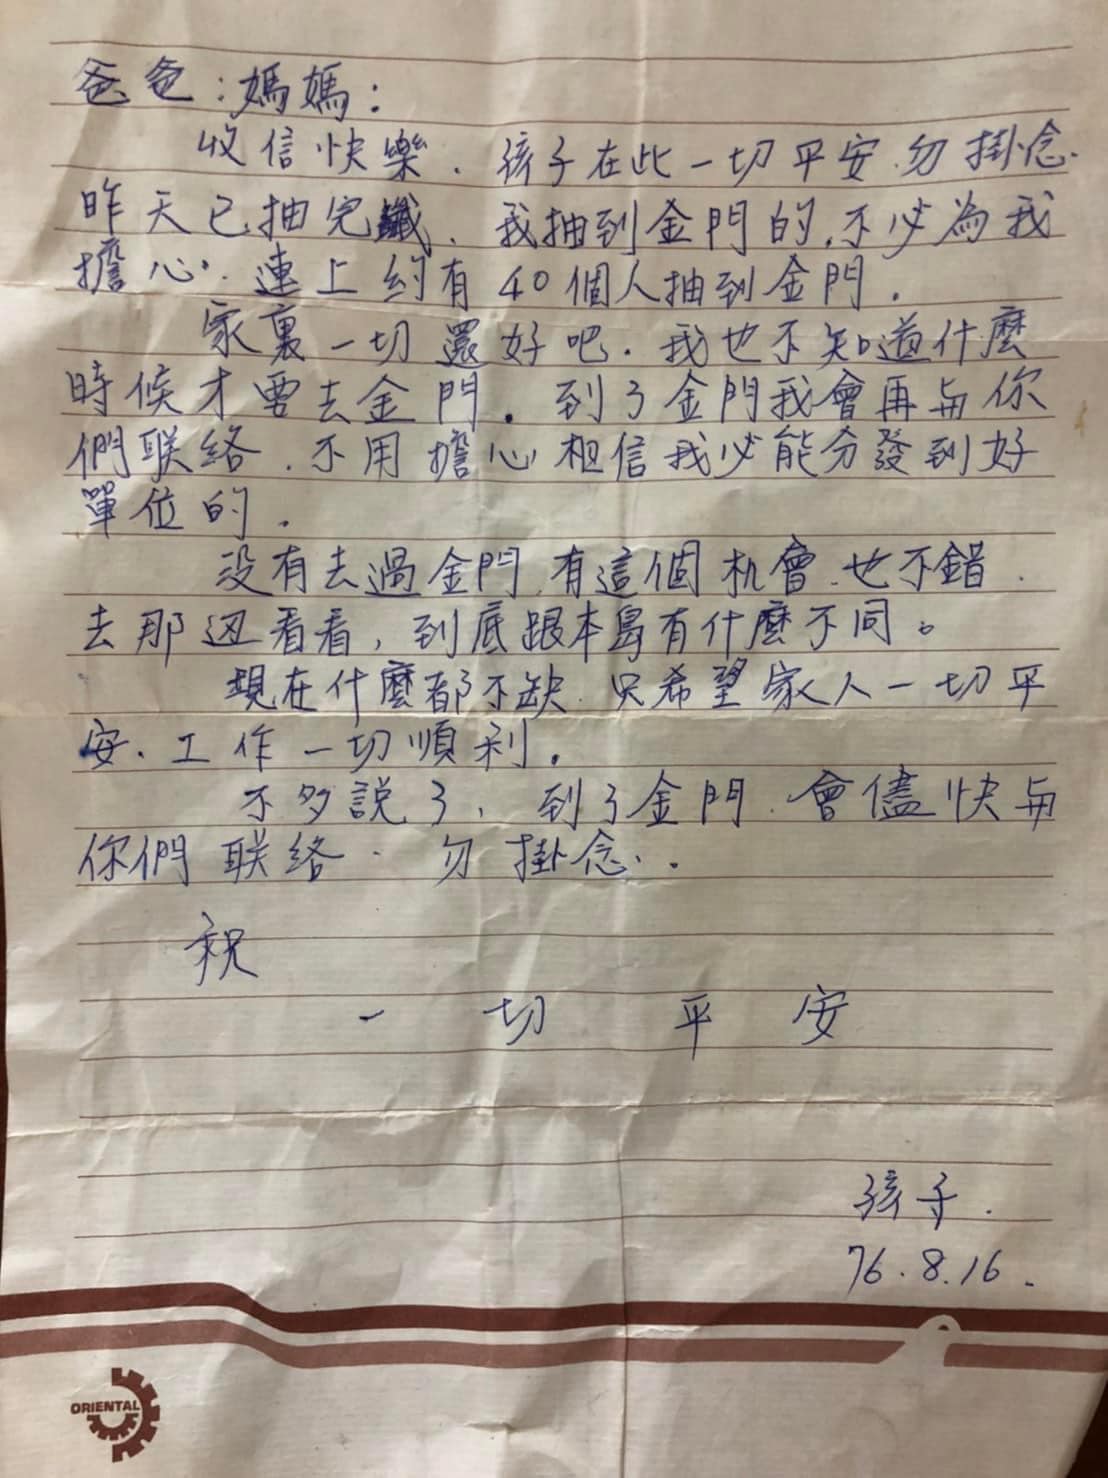 爸爸:媽媽:
收信快樂.孩子在此一切平安.勿掛念.
昨天已抽完籤.我抽到金門的,不必為我
擔心.連上約有40個人抽到金門.
家裏一切還好吧.我也不知道什麼
時候才要去金門.到了金門我會再与你
們联络.不用擔心相信我必能分發到好
單位的.
没有去過金門.有這個机會.也不錯.
去那边看看,到底跟本島有什麼不同。
現在什麼都不缺.只希望家人一切平
安.工作一切順利.
不多説了,到了金門.會儘快与
你們联络.勿掛念.
祝
一切平安
孩子.
76.8.16.
ORIENTAL